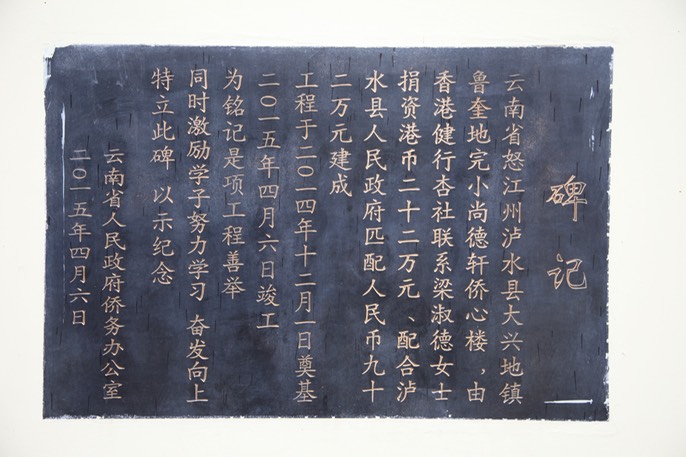 碑记
云南省怒江州泸水县大兴地镇
鲁奎地完小尚德轩侨心楼,由
香港健行杏社联系梁淑德女士
捐资港币二十二万元、配合泸
水县人民政府匹配人民币九十
二万元建成
工程于二〇一四年十二月一日奠基
二〇一五年四月六日竣工
为铭记是项工程善举
同时激励学子努力学习 奋发向上
特立此碑 以示纪念
云南省人民政府侨务办公室
二〇一五年四月六日